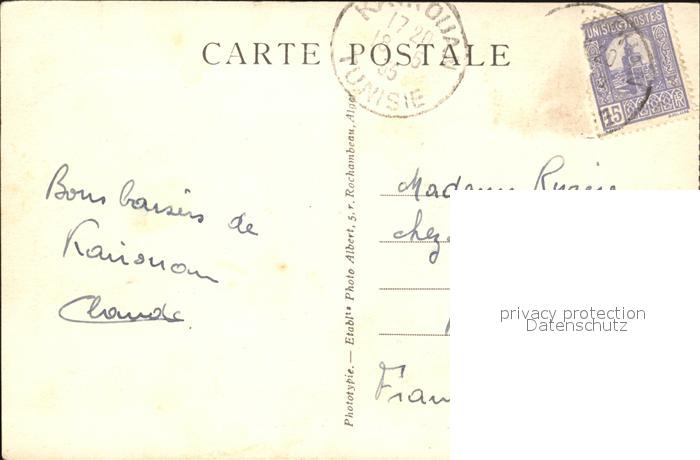 CARTE POSTALE
KAIROUAN
17 20
18
35
TUNISIE
TUNISIE POSTES
15
Bons baisers de
Kairouan
Claude
Phototypie. — Etablts Photo Albert, 5, r. Rochambeau, Alger
Madame
chez
Fran
privacy protection
Datenschutz